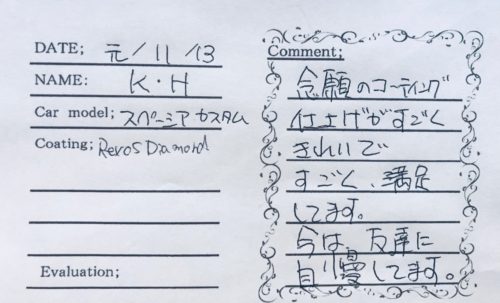 DATE; 元/11/13
NAME: K・H
Car model; スペーシア カスタム
Coating; Revos Diamond
Evaluation;
Comment;
念願のコーティング
仕上げがすごく
きれいで
すごく、満足
してます。
今は、友達に
自慢してます。